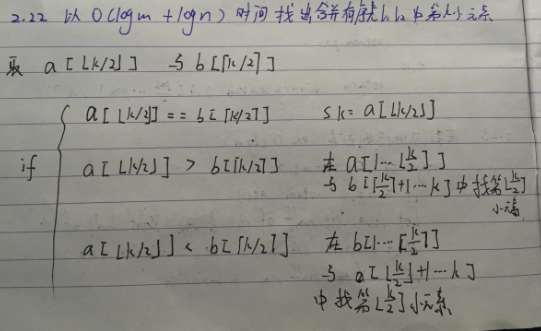 2.22 以 O(logm + logn) 时间找出合并有序 中第k小元素
取 a[⌊k/2⌋] 与 b[⌈k/2⌉]
if
a[⌊k/2⌋] == b[⌈k/2⌉] sk = a[⌊k/2⌋]
a[⌊k/2⌋] > b[⌈k/2⌉] 在 a[1…⌊k/2⌋]
与 b[⌈k/2⌉+1…k] 中找第⌊k/2⌋
小元素
a[⌊k/2⌋] < b[⌈k/2⌉] 在 b[1…⌈k/2⌉]
与 a[⌊k/2⌋+1…k]
中找第⌊k/2⌋小元素